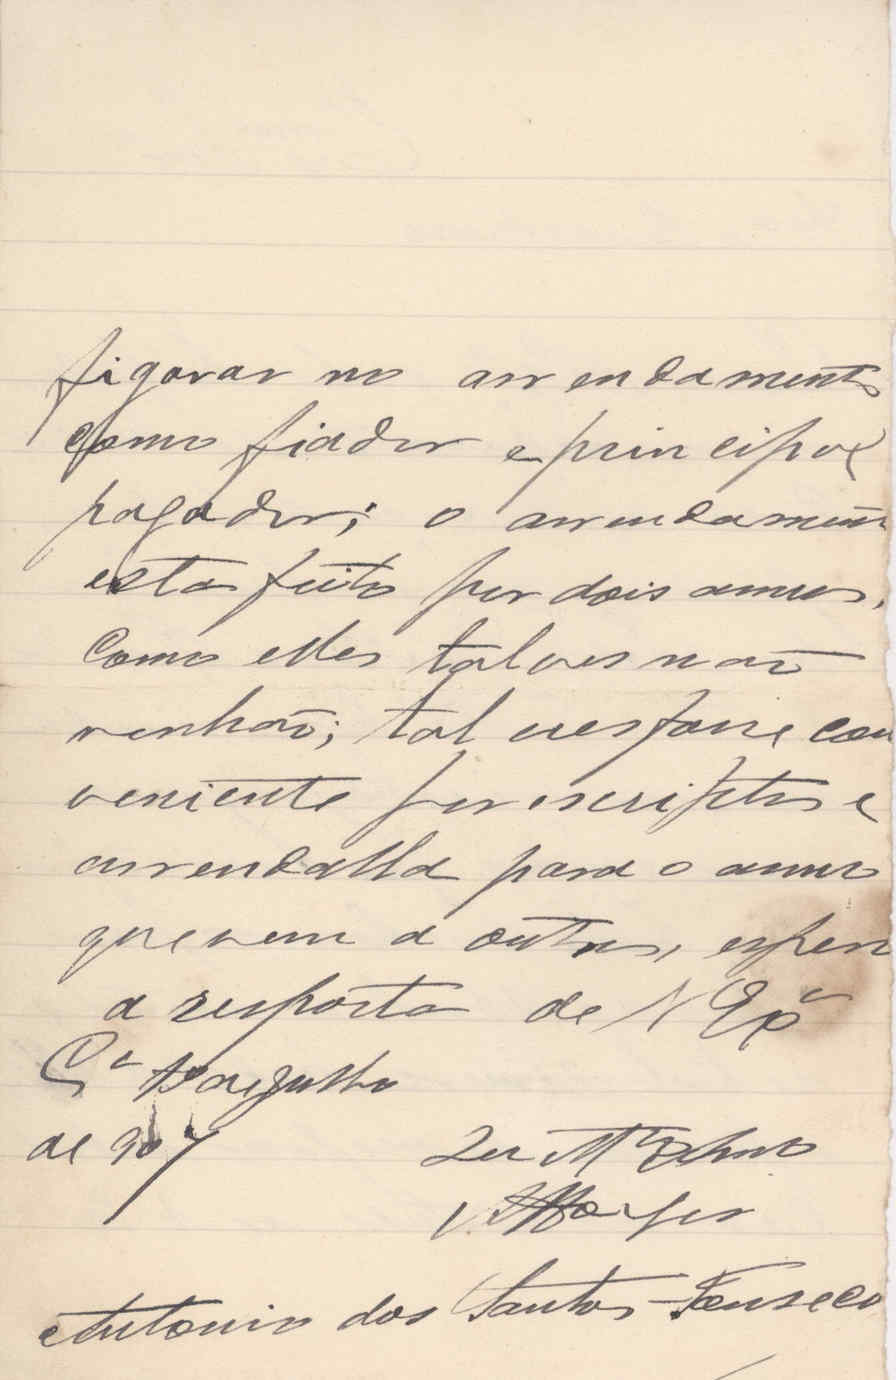 figorar no arrendamento
como fiador e principal
pagador; o arrendamento
esta feito por dois annos,
Como elles talves não
venhão; tal ves fose con
veniente por escriptos e
arrendalla para o anno
que vem a outros, espero
a resposta de V Exª
de 907
Antonio dos Santos Fonseca